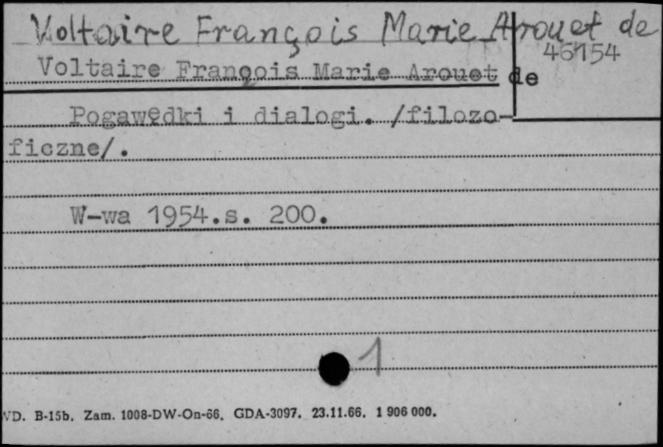 Voltaire François Marie Arouet de
46154
Voltaire François Marie Arouet de
Pogawędki i dialogi. /filozo-
ficzne/.
W-wa 1954.s. 200.
1
WD. B-15b. Zam. 1008-DW-On-66. GDA-3097. 23.11.66. 1 906 000.